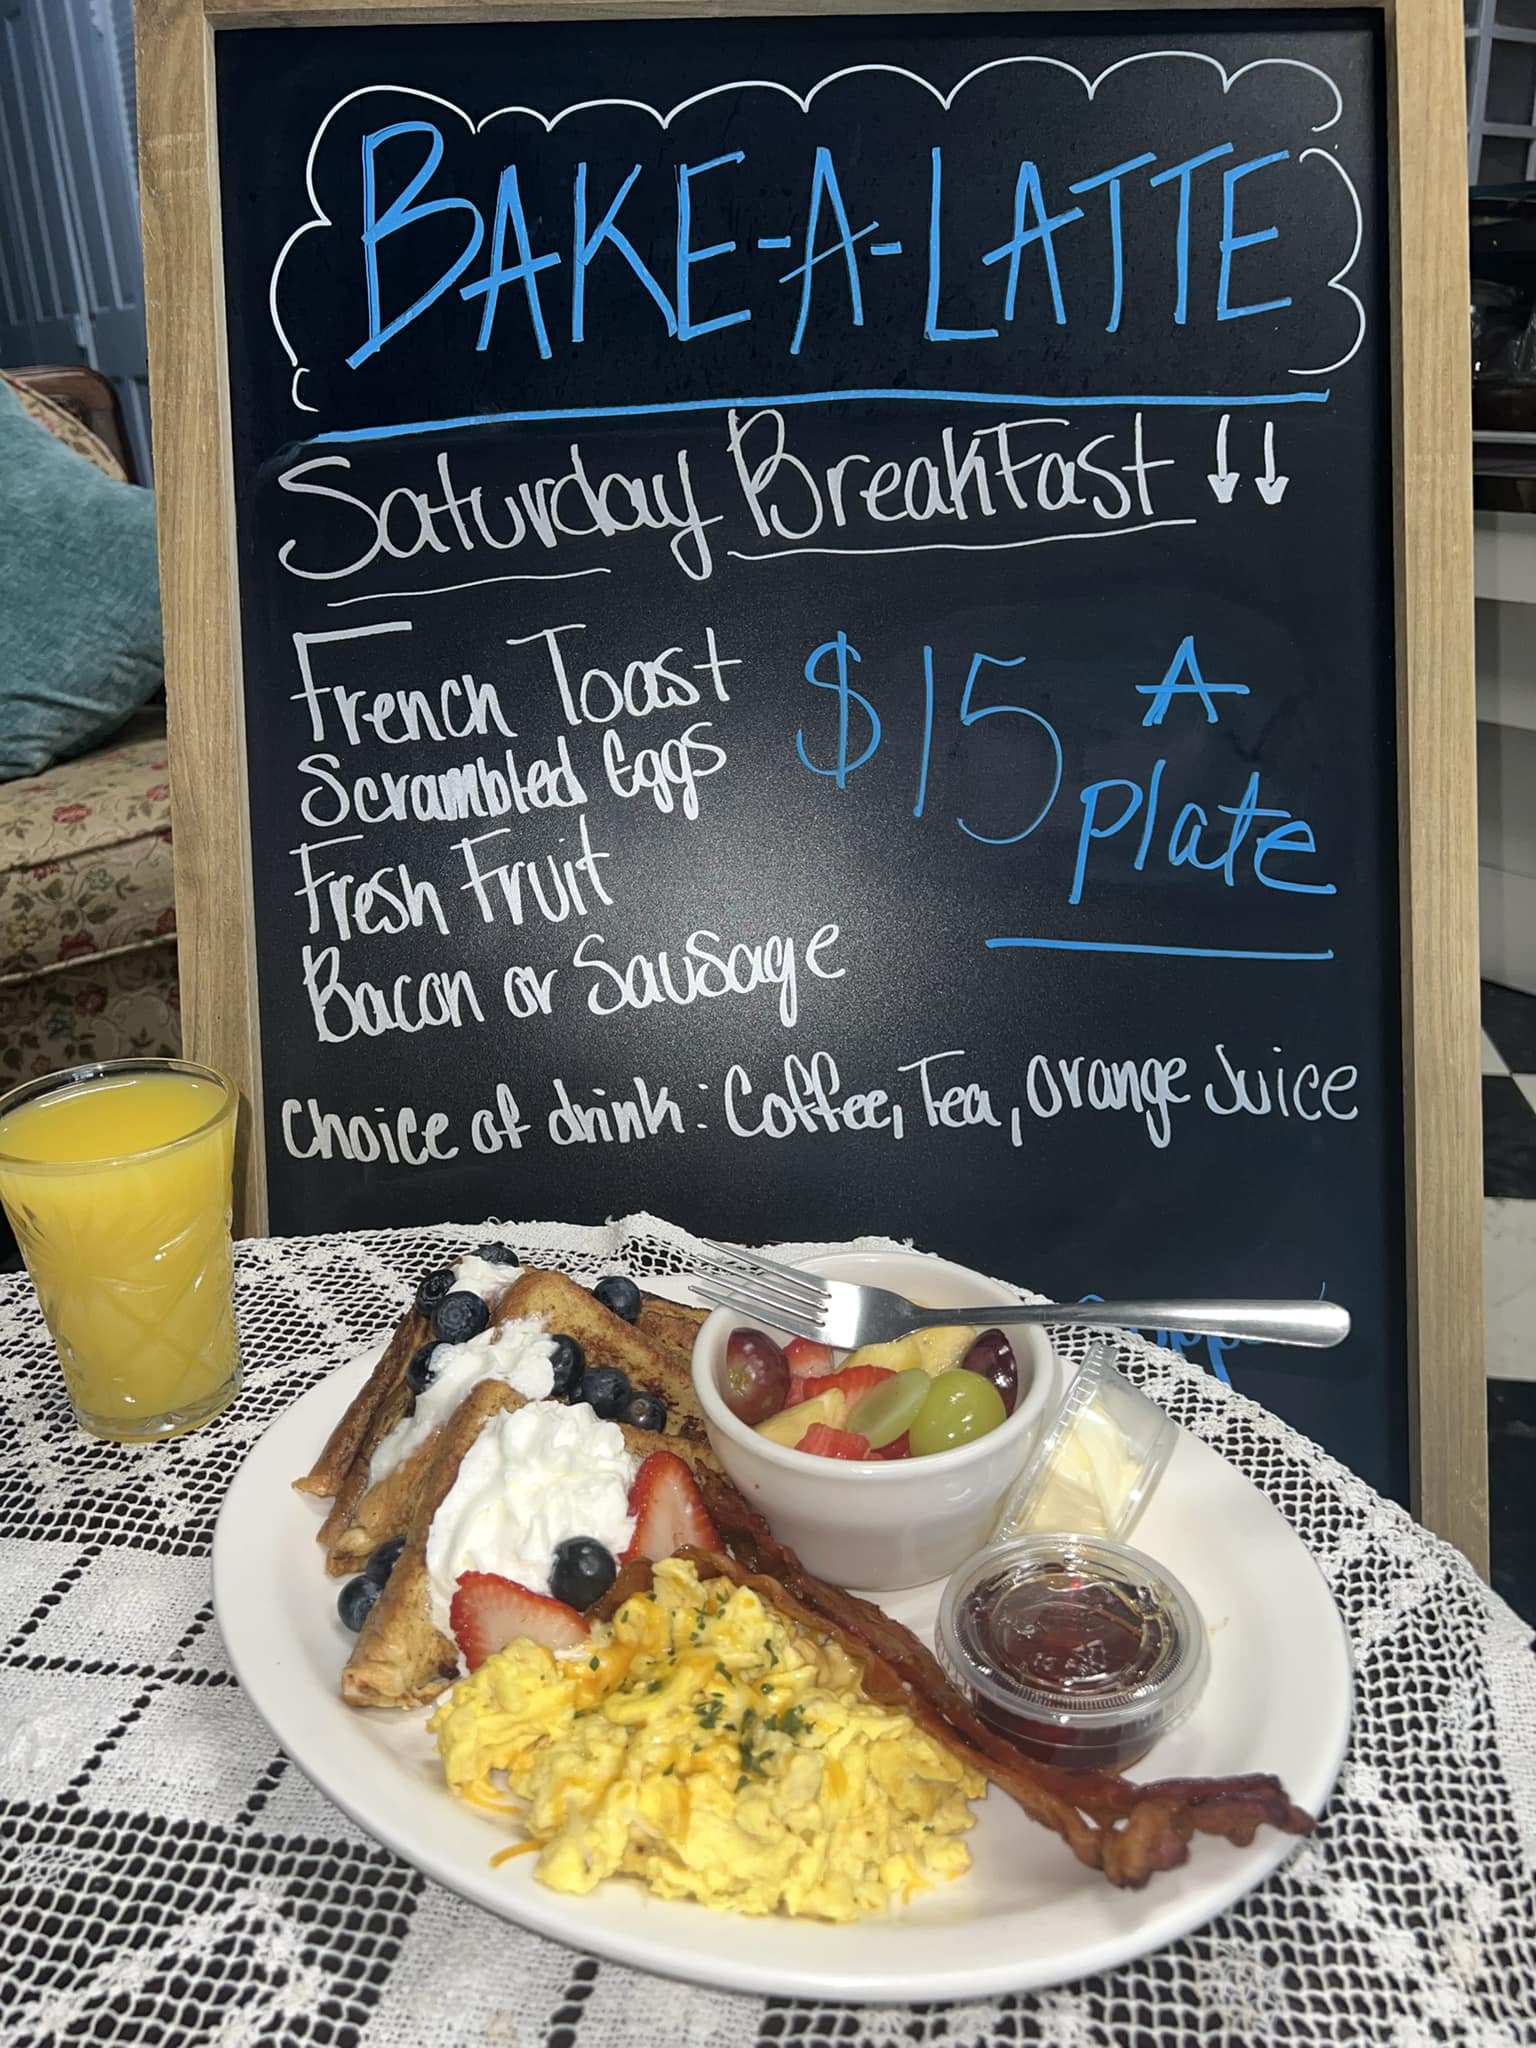 BAKE-A-LATTE
Saturday Breakfast ↓↓
French Toast
Scrambled Eggs
Fresh Fruit
Bacon or Sausage
$15 A
plate
Choice of drink: Coffee, Tea, Orange Juice